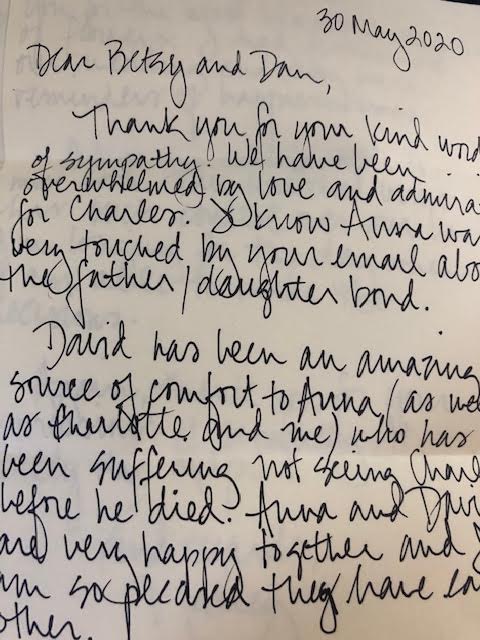 30 May 2020
Dear Betsy and Dan,
Thank you for your kind word
of sympathy. We have been
overwhelmed by love and admira
for Charles. I know Anna was
very touched by your email abo
the father/daughter bond.
David has been an amazing
source of comfort to Anna (as we
as Charlotte and me) who has
been suffering not seeing Charl
before he died. Anna and Davi
are very happy together and I
am so pleased they have ea
other.